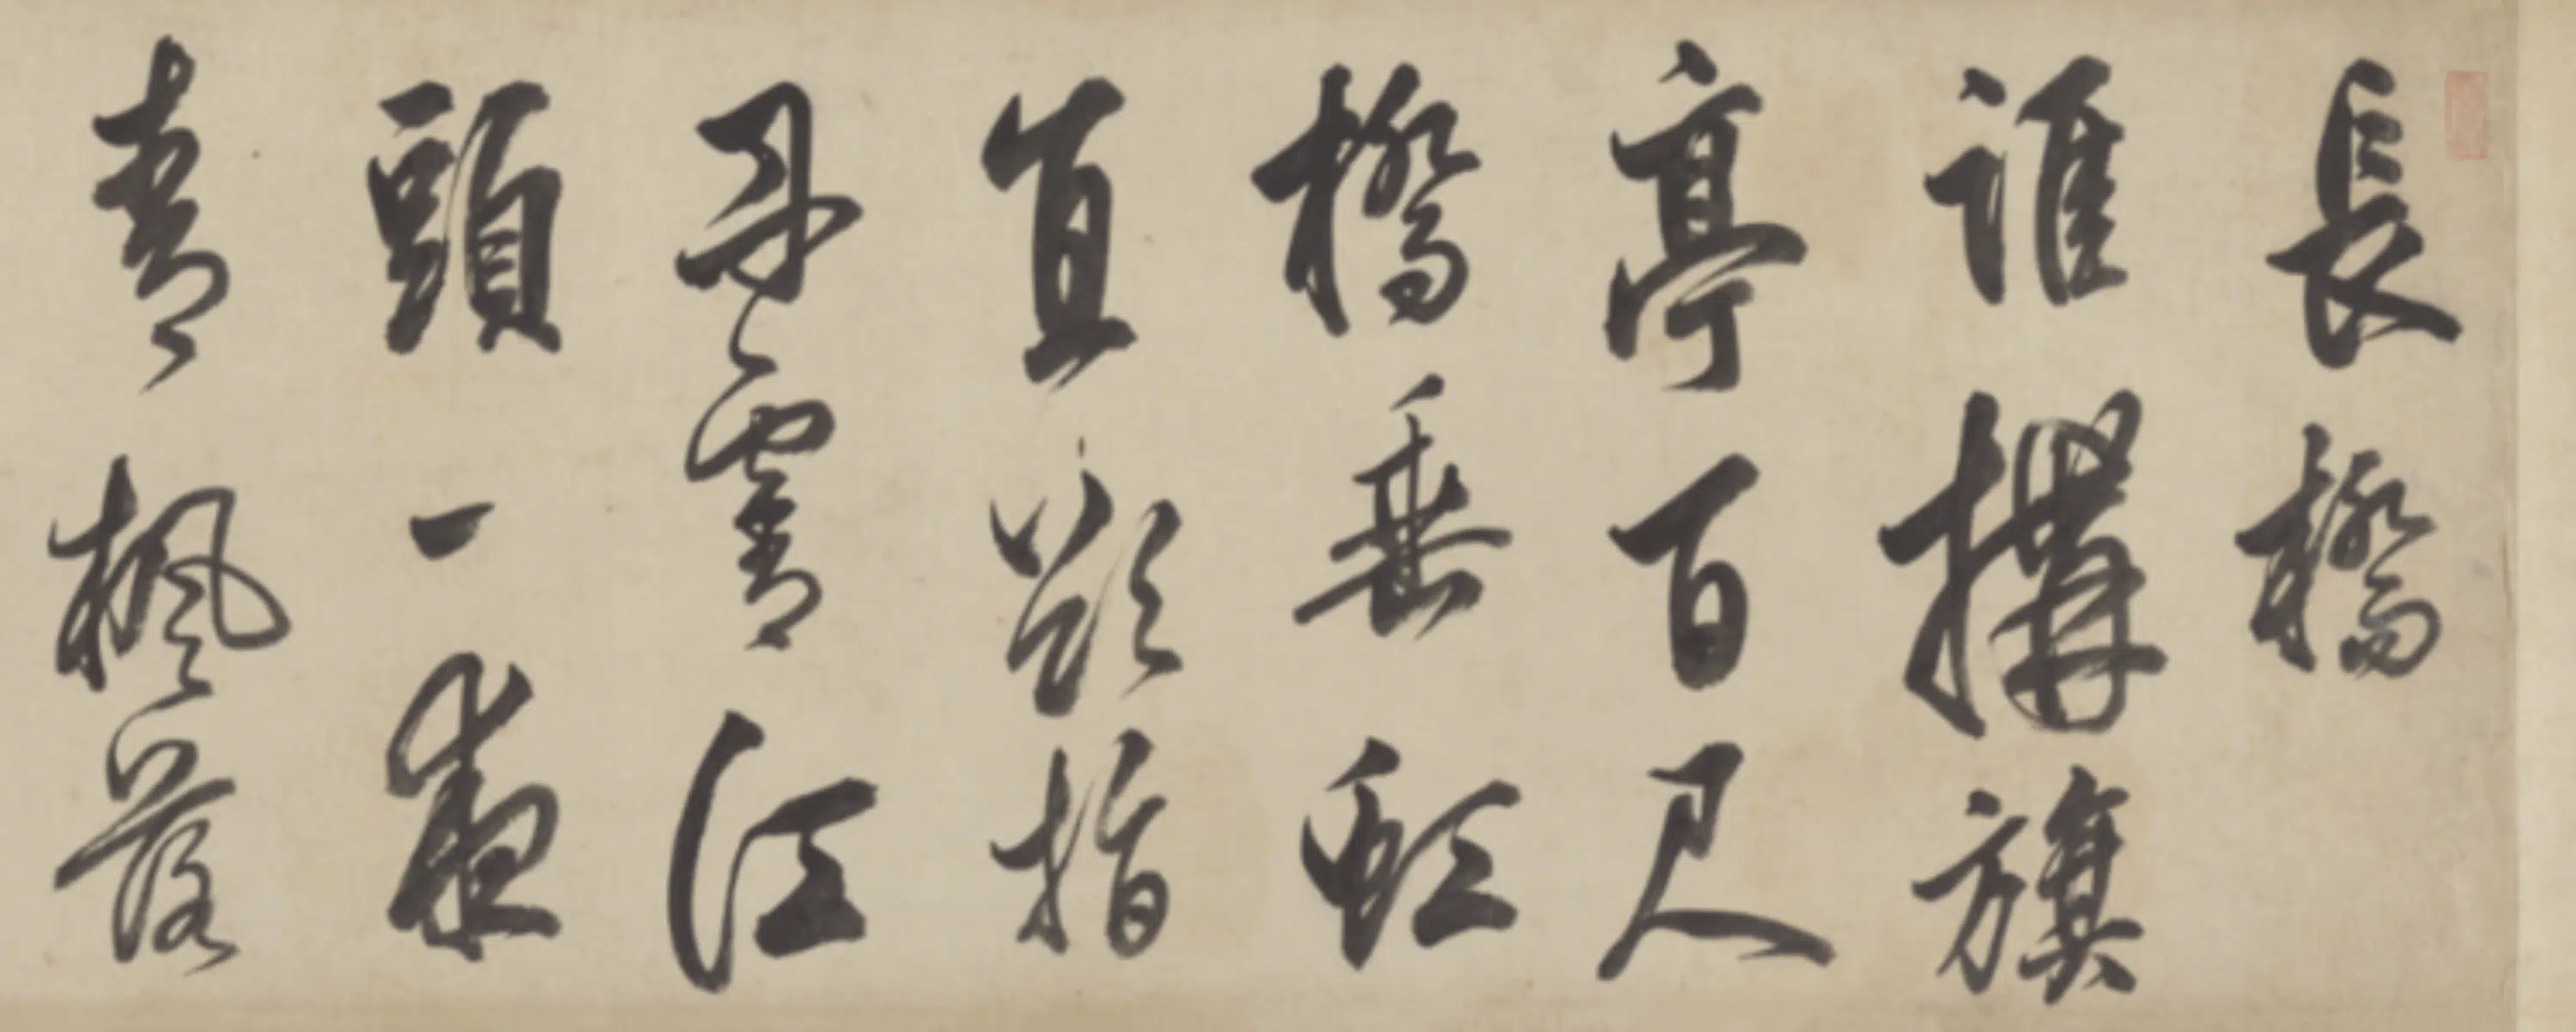 長橋
誰構旗
亭百尺
橋垂虹
直欲指
丹霄江
頭一夜
青楓落